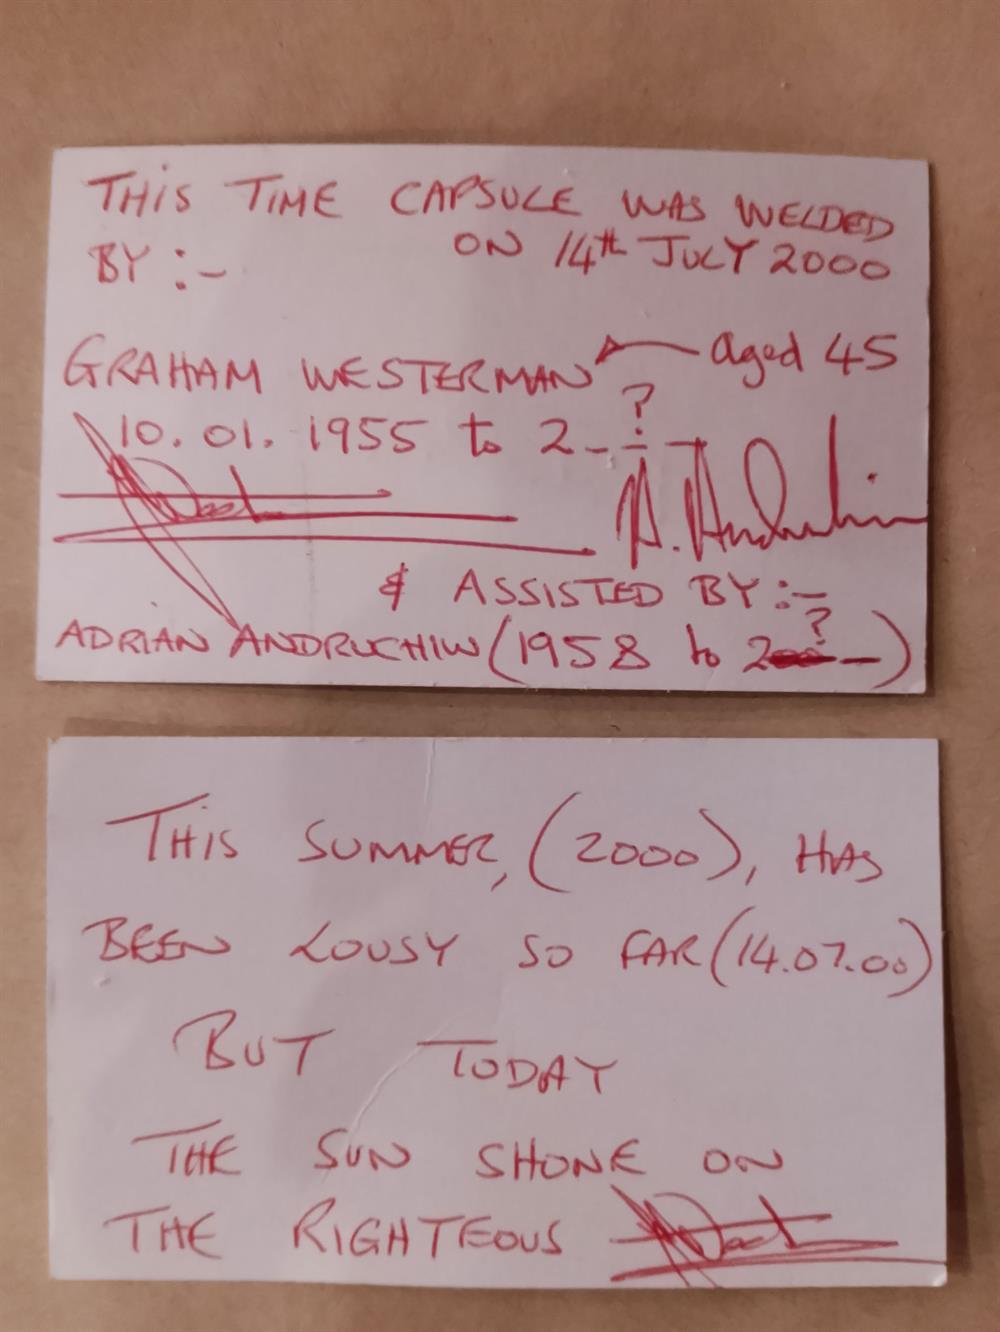 THIS TIME CAPSULE WAS WELDED
BY :- ON 14th JULY 2000
GRAHAM WESTERMAN aged 45
10.01.1955 to 2_ ? _
A. Andruchiw
& ASSISTED BY :-
ADRIAN ANDRUCHIW (1958 to 2 ? _)
THIS SUMMER, (2000), HAS
BEEN LOUSY SO FAR (14.07.00)
BUT TODAY
THE SUN SHONE ON
THE RIGHTEOUS